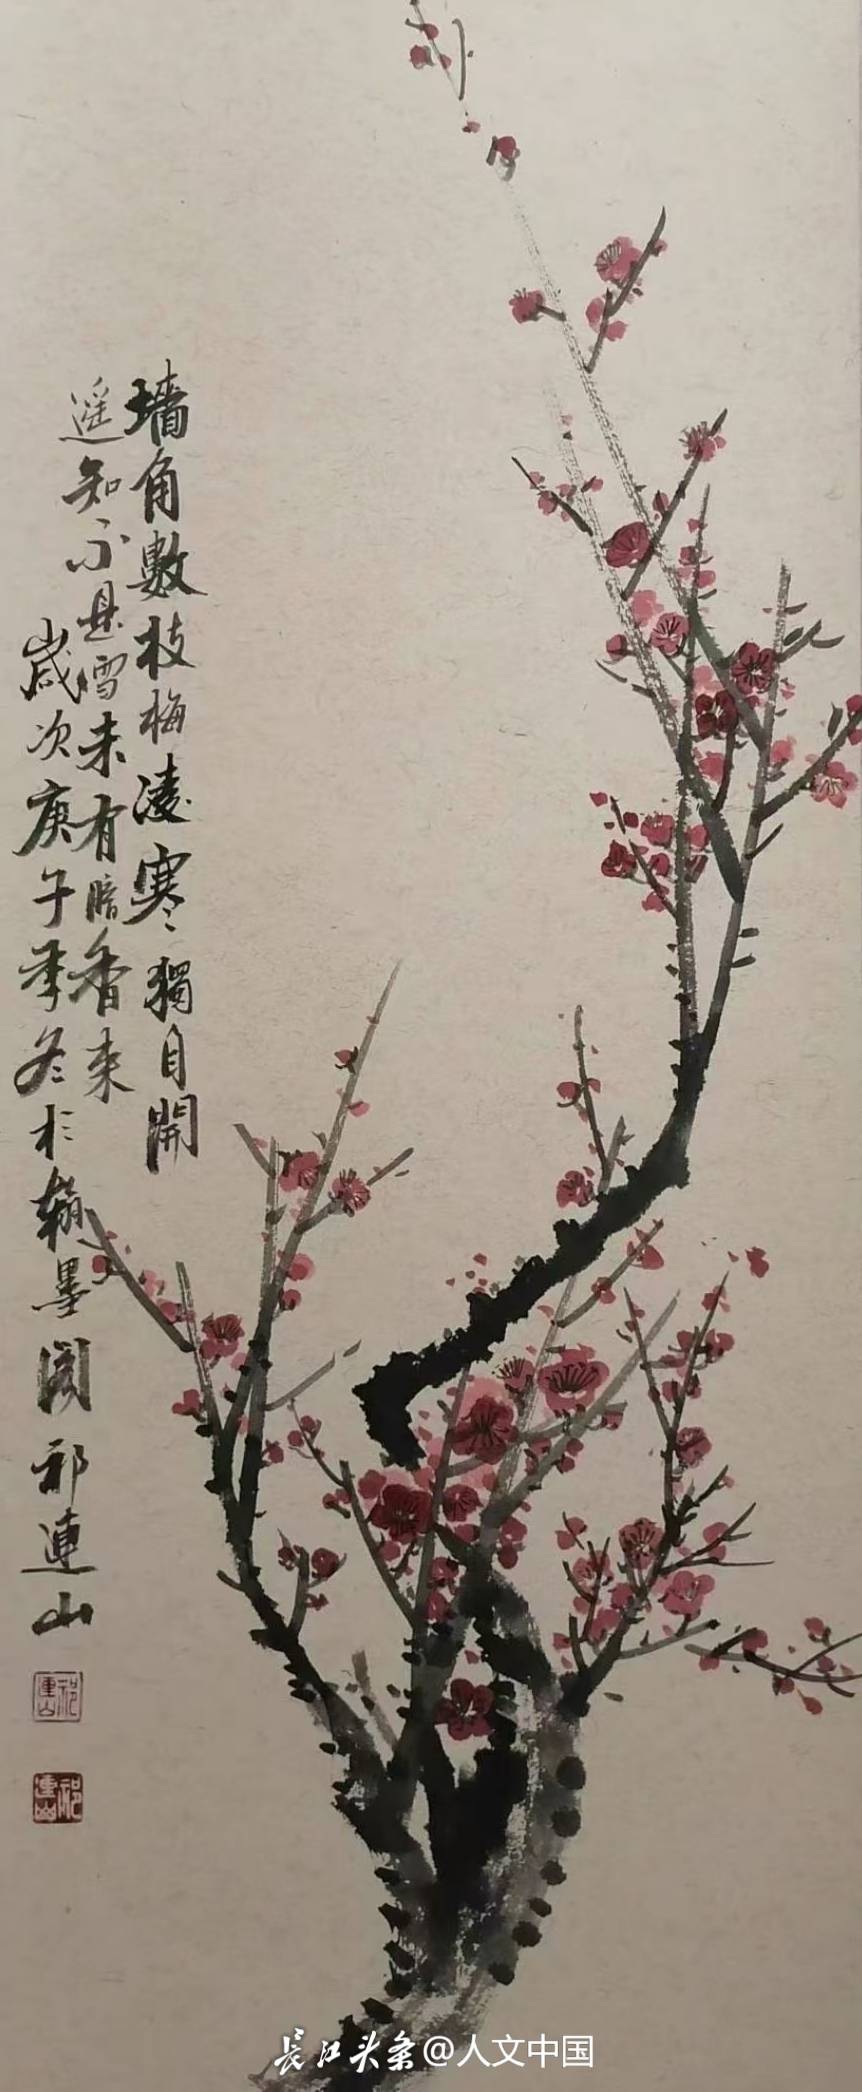 墙角數枝梅凌寒獨自開
遥知不是雪未有暗香来
歲次庚子季冬於翰墨阁祁連山
祁連山
祁連山
长江头条@人文中国